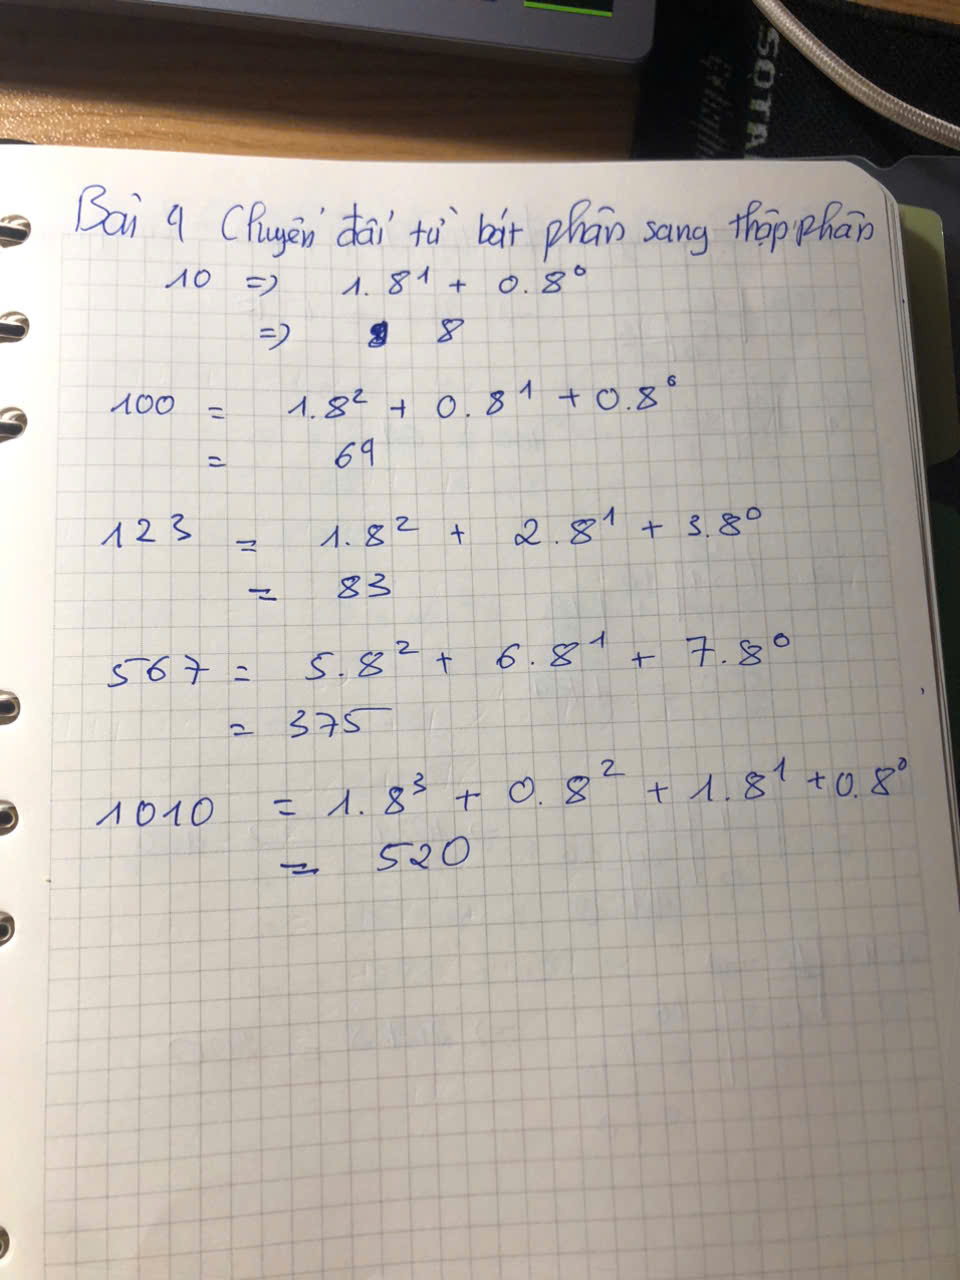 SOTA
Bài 4 Chuyển đổi từ bát phân sang thập phân
10 => 1.8¹ + 0.8⁰
=> 8
100 = 1.8² + 0.8¹ + 0.8⁰
= 69
123 = 1.8² + 2.8¹ + 3.8⁰
= 83
567 = 5.8² + 6.8¹ + 7.8⁰
= 375
1010 = 1.8³ + 0.8² + 1.8¹ + 0.8⁰
= 520